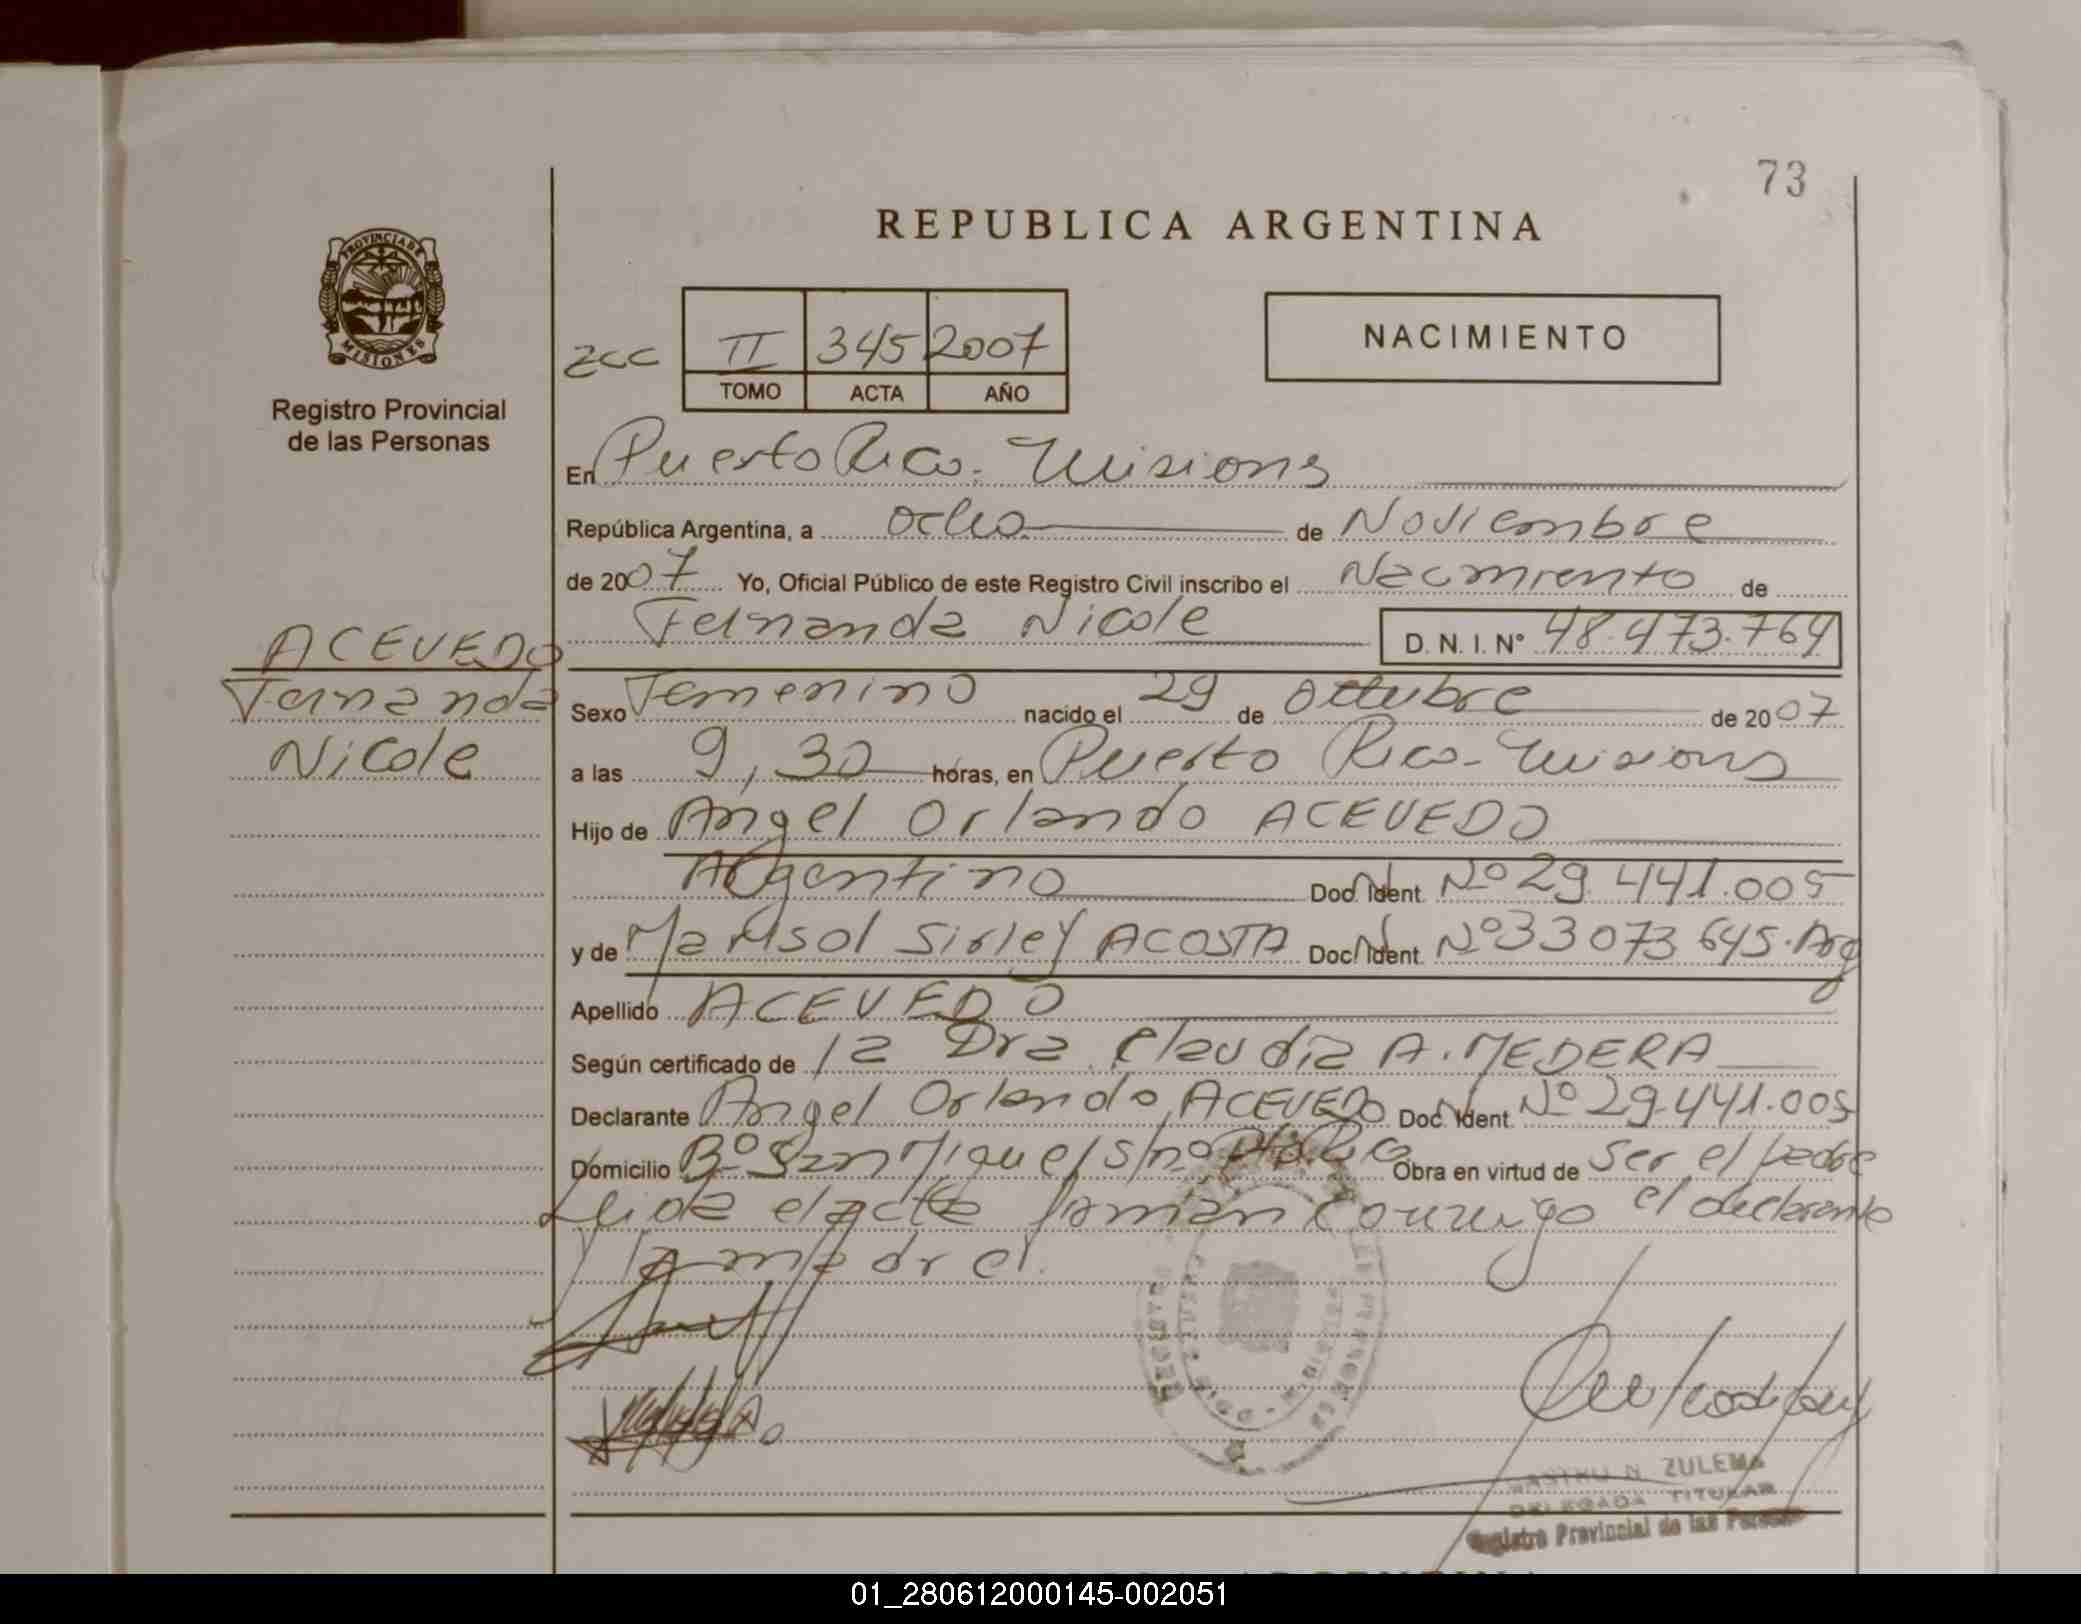 73
REPUBLICA ARGENTINA
PROVINCIA DE
MISIONES
Registro Provincial
de las Personas
zcc II 345 2007
TOMO ACTA AÑO
NACIMIENTO
En Puerto Rico. Misiones
República Argentina, a ocho de Noviembre
de 2007 Yo, Oficial Público de este Registro Civil inscribo el Nacimiento de
Fernanda Nicole D. N. I. N° 48.473.764
ACEVEDO
Fernanda
Nicole
Sexo Femenino nacido el 29 de Octubre de 2007
a las 9,30 horas, en Puerto Rico - Misiones
Hijo de Angel Orlando ACEVEDO
Argentino Doc. Ident. Nº 29.441.005
y de Marisol Sirley ACOSTA Doc. Ident. Nº 33073645. Arg
Apellido ACEVEDO
Según certificado de la Dra Claudia A. MEDERA
Declarante Angel Orlando ACEVEDO Doc. Ident. Nº 29.441.005
Domicilio Bº San Miguel s/nº Pto Rico Obra en virtud de ser el padre
Leida el acta firman conmigo el declarante
y la madre.
N. ZULEMA
DELEGADA TITULAR
Registro Provincial de las Personas
01_280612000145-002051